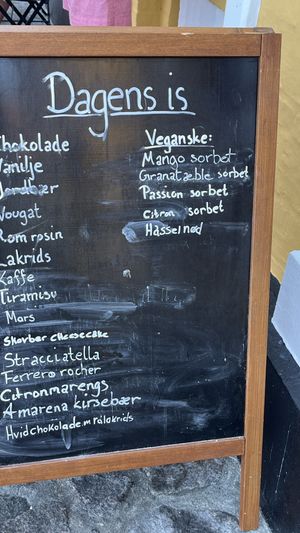 Dagens is
Chokolade
Vanilje
Jordbær
Nougat
Rom rosin
Lakrids
Kaffe
Tiramisu
Mars
Skovbær cheesecake
Stracciatella
Ferrero rocher
Citronmarengs
Amarena kirsebær
Hvid chokolade m rålakrids
Veganske:
Mango sorbet
Granatæble sorbet
Passion sorbet
Citron sorbet
Hasselnød